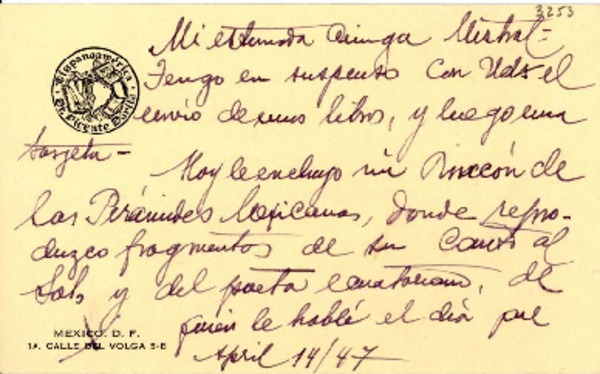 3253
Hispanoamérica
Dr. Vicente Dávila
Mi estimada amiga Mistral -
Tengo en suspenso con Uds el
envío de unos libros, y luego una
tarjeta -
Hoy le incluyo mi Rincón de
las Pirámides Mejicanas, donde repro-
duzco fragmentos de su Canto al
Sol, y del poeta ecuatoriano, de
quien le hablé el día que
MEXICO, D. F.
1A. CALLE DEL VOLGA 5-B
April 14/47